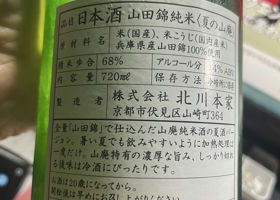 品目 日本酒 山田錦純米〈夏の山廃
原材料名 米(国産)、米こうじ(国産米)
兵庫県産山田錦100%使用
精米歩合 68% アルコール分
内容量 720ml 保存方法
製造者 株式会社 北川本家
京都市伏見区山崎町364
全量「山田錦」で仕込んだ山廃純米酒の夏バー
ジョン。暑い夏でも飲みやすいように加熱処理は
一度だけ。山廃特有の濃厚な旨み、しっかり切れ
る後味は冷酒にぴったりです。
お酒は20歳になってから。
開栓後は早めにお召し上がりください